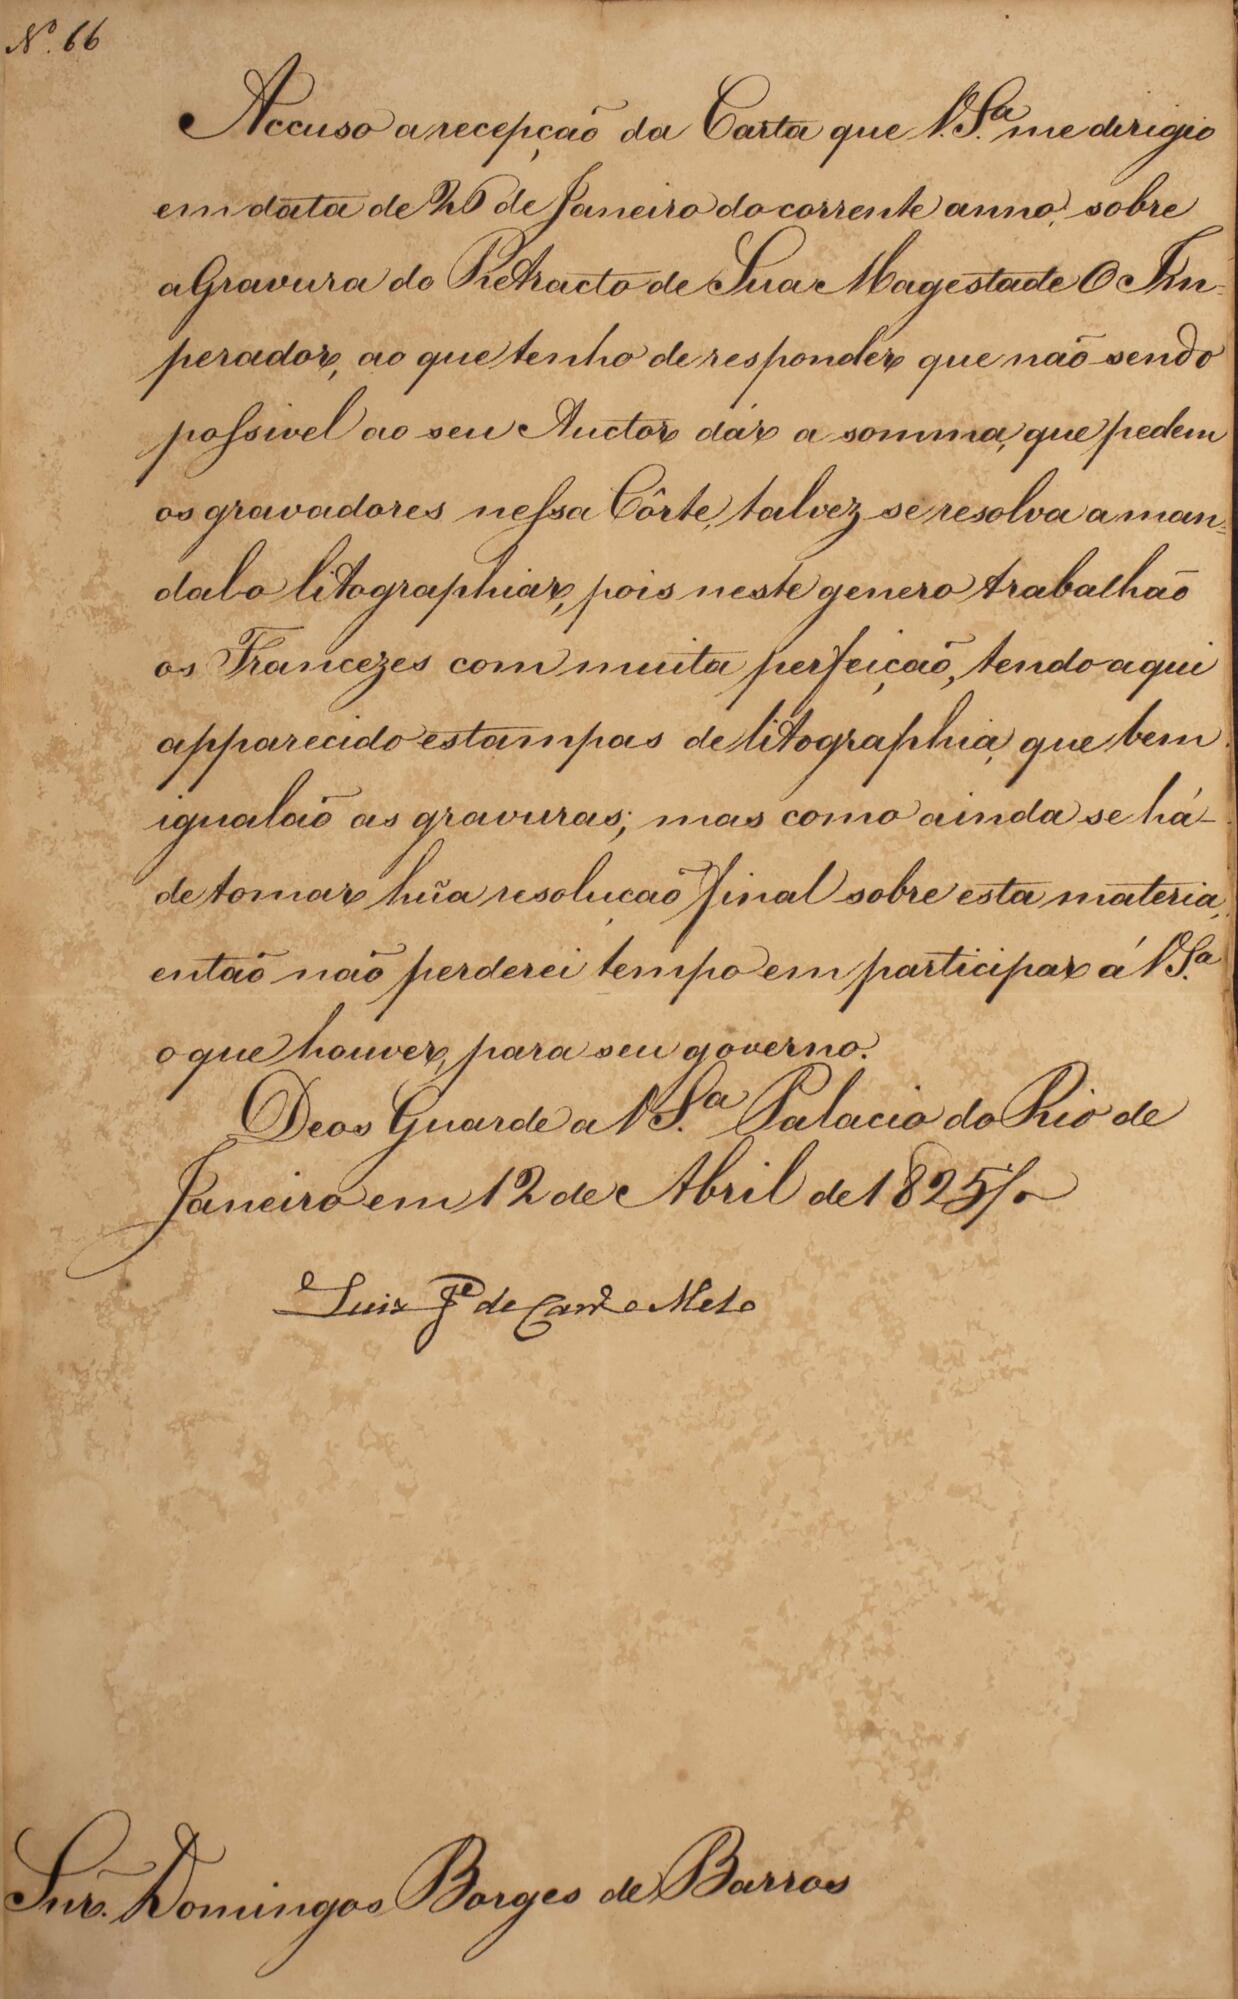 Nº. 66
Accuso a recepção da Carta que V.S.ª me dirigio
em data de 26 de Janeiro do corrente anno, sobre
a Gravura do Retracto de Sua Magestade O Im-
perador, ao que tenho de responder que não sendo
possivel ao seu Auctor dár a somma, que pedem
os gravadores nessa Côrte, talvez se resolva a man=
dalo litographiar, pois neste genero trabalhão
os Francezes com muita perfeição, tendo aqui
apparecido estampas de litographia, que bem
igualão as gravuras; mas como ainda se há-
de tomar hũa resolução final sobre esta materia,
então não perderei tempo em participar á V.S.ª
o que houver, para seu governo.
Deos Guarde a V.S.ª Palacio do Rio de
Janeiro em 12 de Abril de 1825
Luiz Jé de Carvº e Mello
Snr. Domingos Borges de Barros